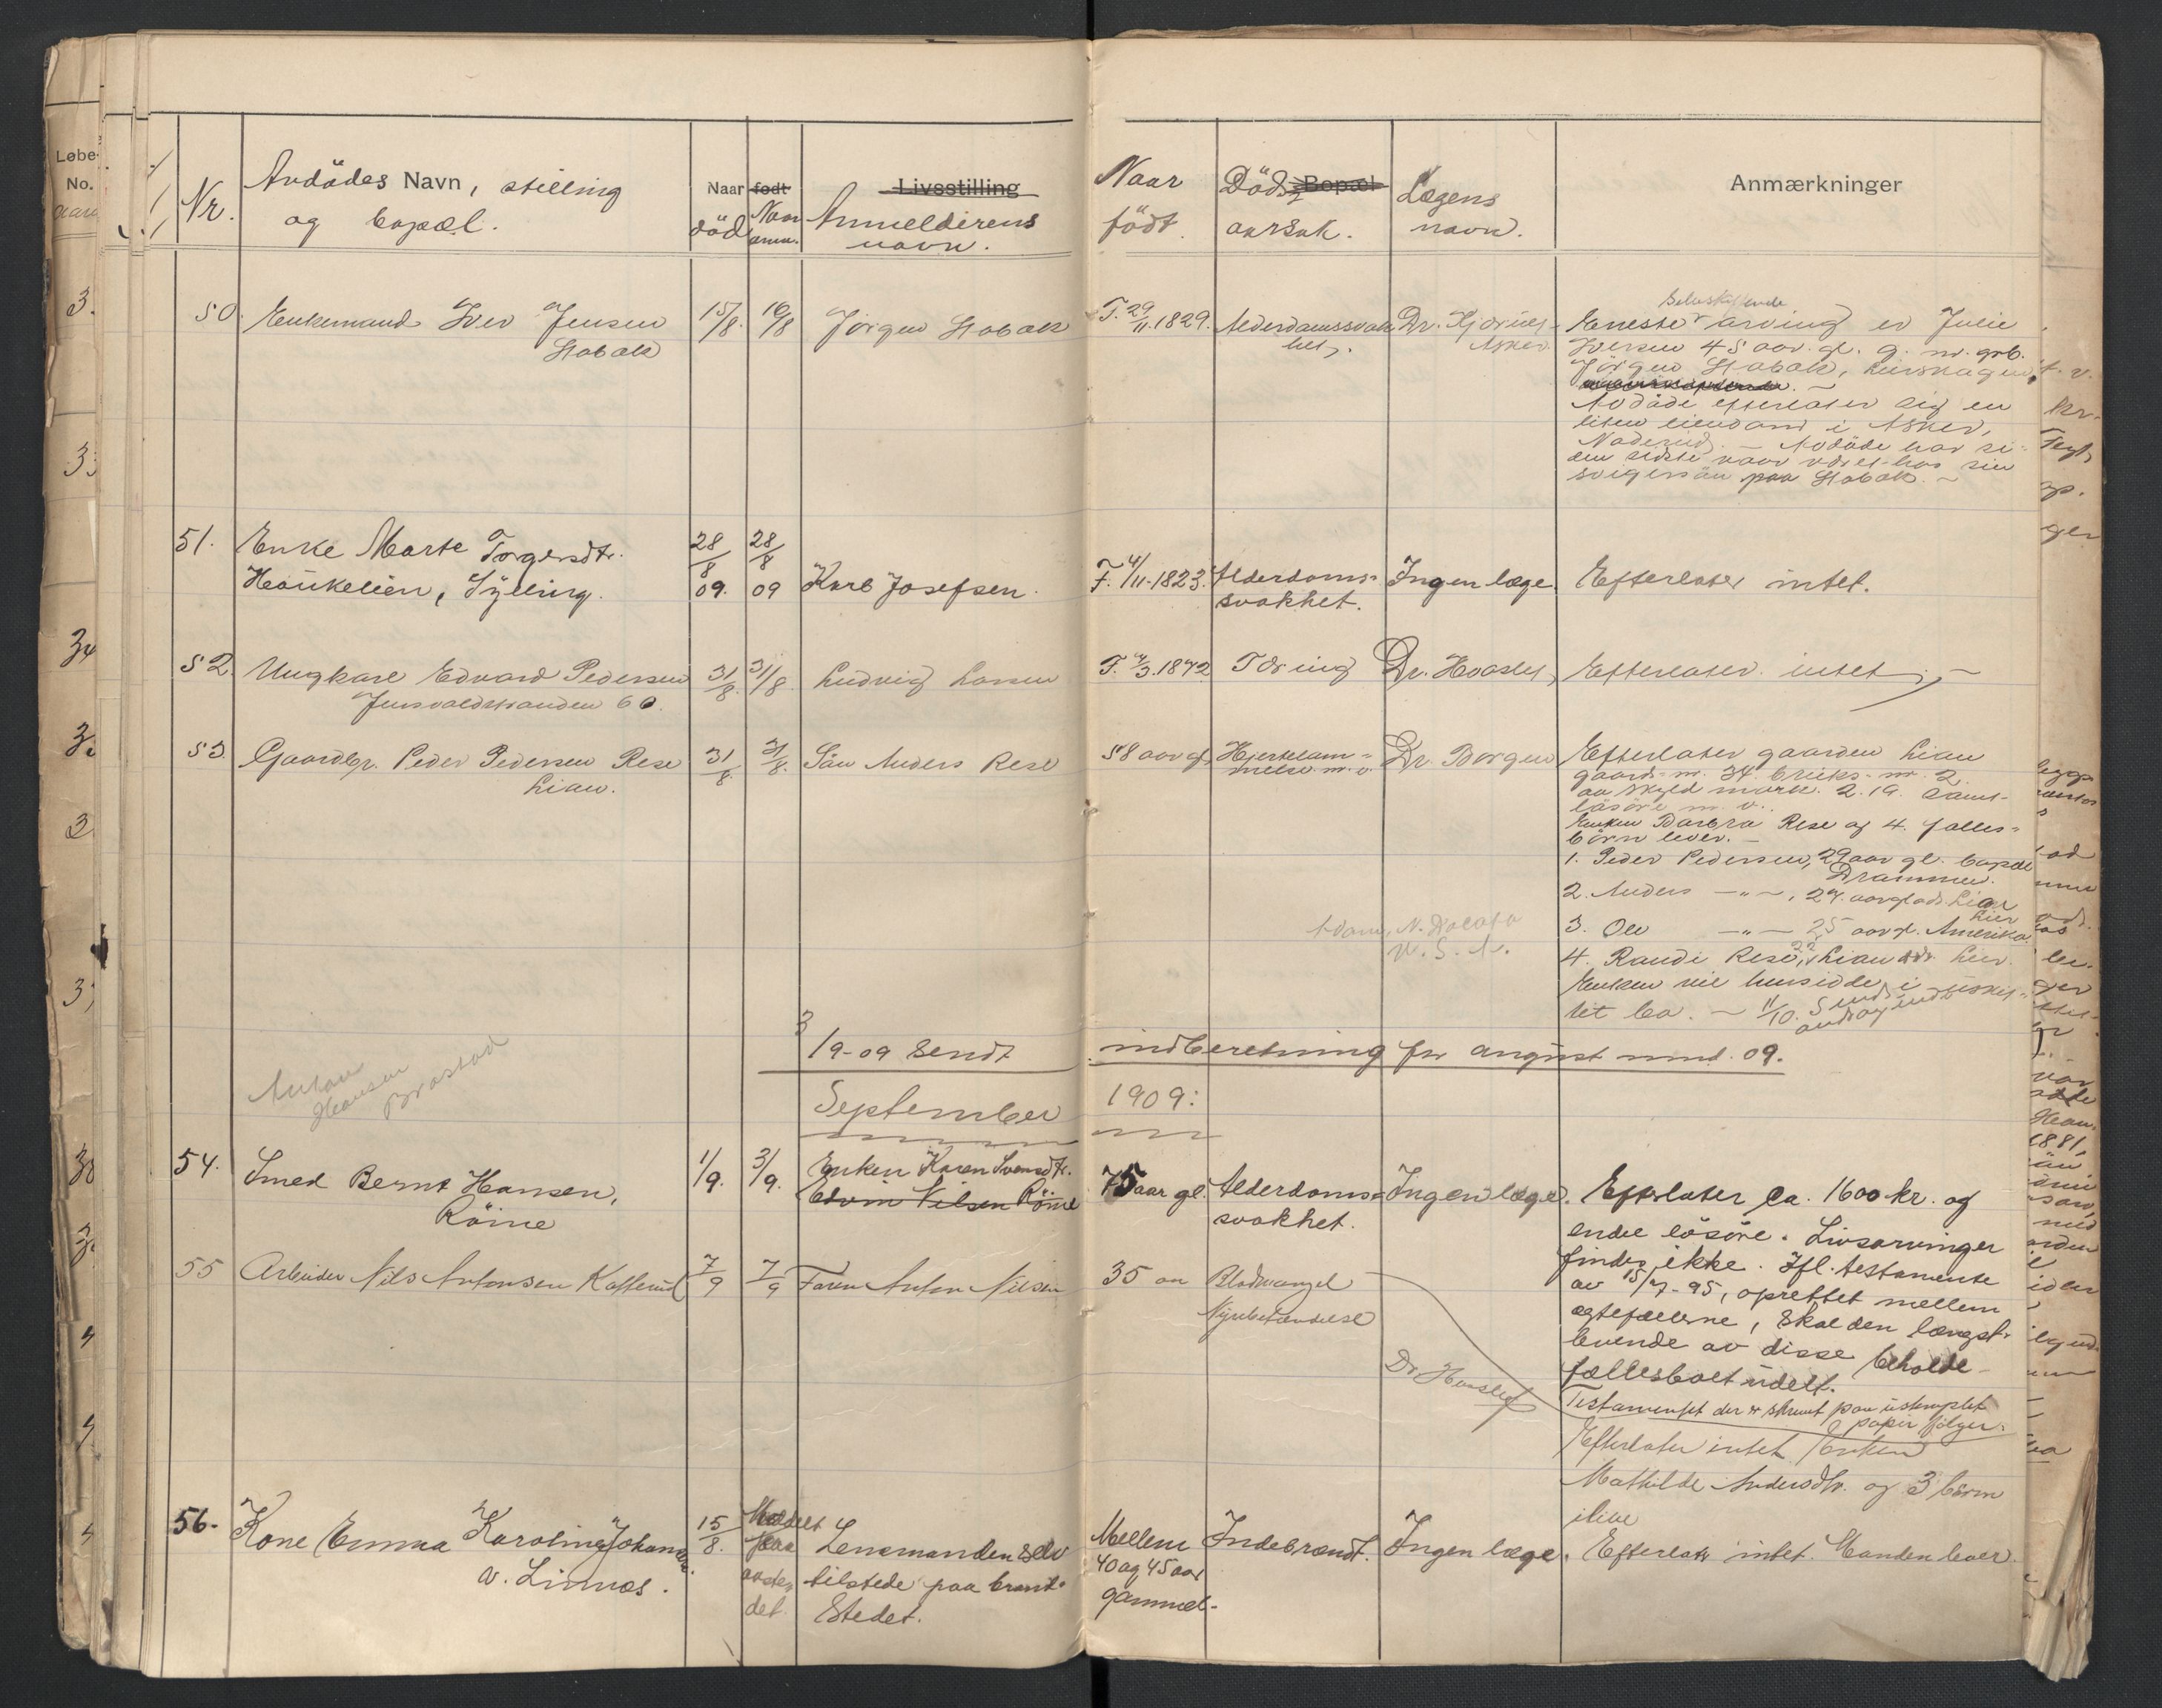 Nr.
Avdödes Navn, stilling
og bopæl.
Naar født
död
Naar
anm.
Livsstilling
Anmelderens
navn.
Naar
født.
Döds Bopæl
aarsak.
Lægens
navn.
Anmærkninger
50. Enkemand Iver Jensen
Stabæk
15/8. 16/8 Jörgen Stabæk
F. 29/11.1829. Alderdomssvak
het.
Dr.
Asker.
Selvskiftende
Eneste arving er Julie
Iversen 45 aar. gl. g. m. grb.
Jörgen Stabæk,
Avdöde efterlater sig en
liten eiendom i Asker,
Avdöde har si-
den sidste vaar været hos sin
svigersön paa Stabæk. -
51. Enke Marte Torgersdtr.
Haukelien, Sylling.
28/8 09. 28/8 09 Karl Josefsen.
F. 4/11-1823. Alderdoms-
svakhet.
Ingen læge. Efterlater intet.
52. Ungkare Edvard Pedersen
Jensvoldstranden 60.
31/8. 31/8. Ludvig Larsen
F. 4/3.1872 Tæring Dr. Hvoslef, Efterlater intet.
53. Gaardbr. Peder Pedersen Rese
Lian.
31/8. 31/8. Sön Anders Rese
58 aar gl. Hjertelam-
melse m. v.
Dr. Borgen
Efterlater gaarden Lian
gaards-nr. 34. bruks-nr. 2.
av skyld mark. 2.19. samt
lösöre m. v.
Enken Barbra Rese og 4. fælles-
börn lever. -
1. Peder Pedersen, 29 aar gl. bopæl
Drammen.
2. Anders -"-, 27. aar gl. ads Lian
Lier
3. Ole -"- 25 aar gl. Amerika.
Adams, N. Dacota
U. S. A.
4. Randi Rese, 22, Lian ads Lier.
Enken vil hensidde i uskif-
tet bo. - 11/10. Sendt
3/9-09 sendt indberetning for august mnd. 09.
Anton
Hansen
Brastad
September 1909:
54. Smed Bernt Hansen,
Röine
1/9. 3/9. Enken Karen Svensdtr.
Edvin Nilsen Röine
75 aar gl. Alderdoms-
svakhet.
Ingen læge.
Efterlater ca. 1600 kr. og
endel lösöre. Livsarvinger
findes ikke. Ifl. testamente
av 15/7-95, oprettet mellem
egtefællerne, skal den længst-
levende av disse beholde
fællesboet udelt.
Testamentet der er skrevet paa ustemplet
papir fölger.
55 Arbeider Nils Antonsen Kafterud
7/9 7/9 Faren Anton Nilsen
35 aar Blodmangel
Nyrebetændelse
Dr Hvoslef
Efterlater intet Enken
Mathilde Andersdtr. og 3 börn
ilive
56. Kone Emma Karoline Johansen
v. Linnes.
15/8. Meldt
paa
aaste-
det.
Lensmanden selv
tilstede paa brand-
stedet.
Mellem
40 og 45 aar
gammel.
Indebrændt. Ingen læge. Efterlater intet. Manden lever.